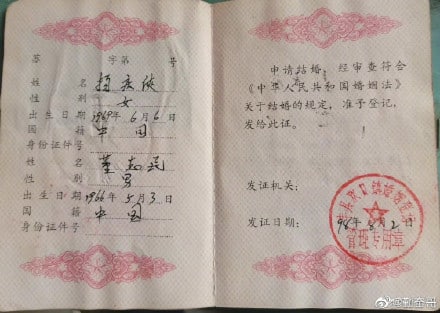 苏 字第 号
姓 名
性 别 女
出生日期 1969年6月6日
国 籍 中国
身份证件号
姓 名 董志民
性 别 男
出生日期 1966年5月3日
国 籍 中国
身份证件号
申请结婚,经审查符合
《中华人民共和国婚姻法》
关于结婚的规定,准予登记,
发给此证。
发证机关:
发证日期: 98年8月2日